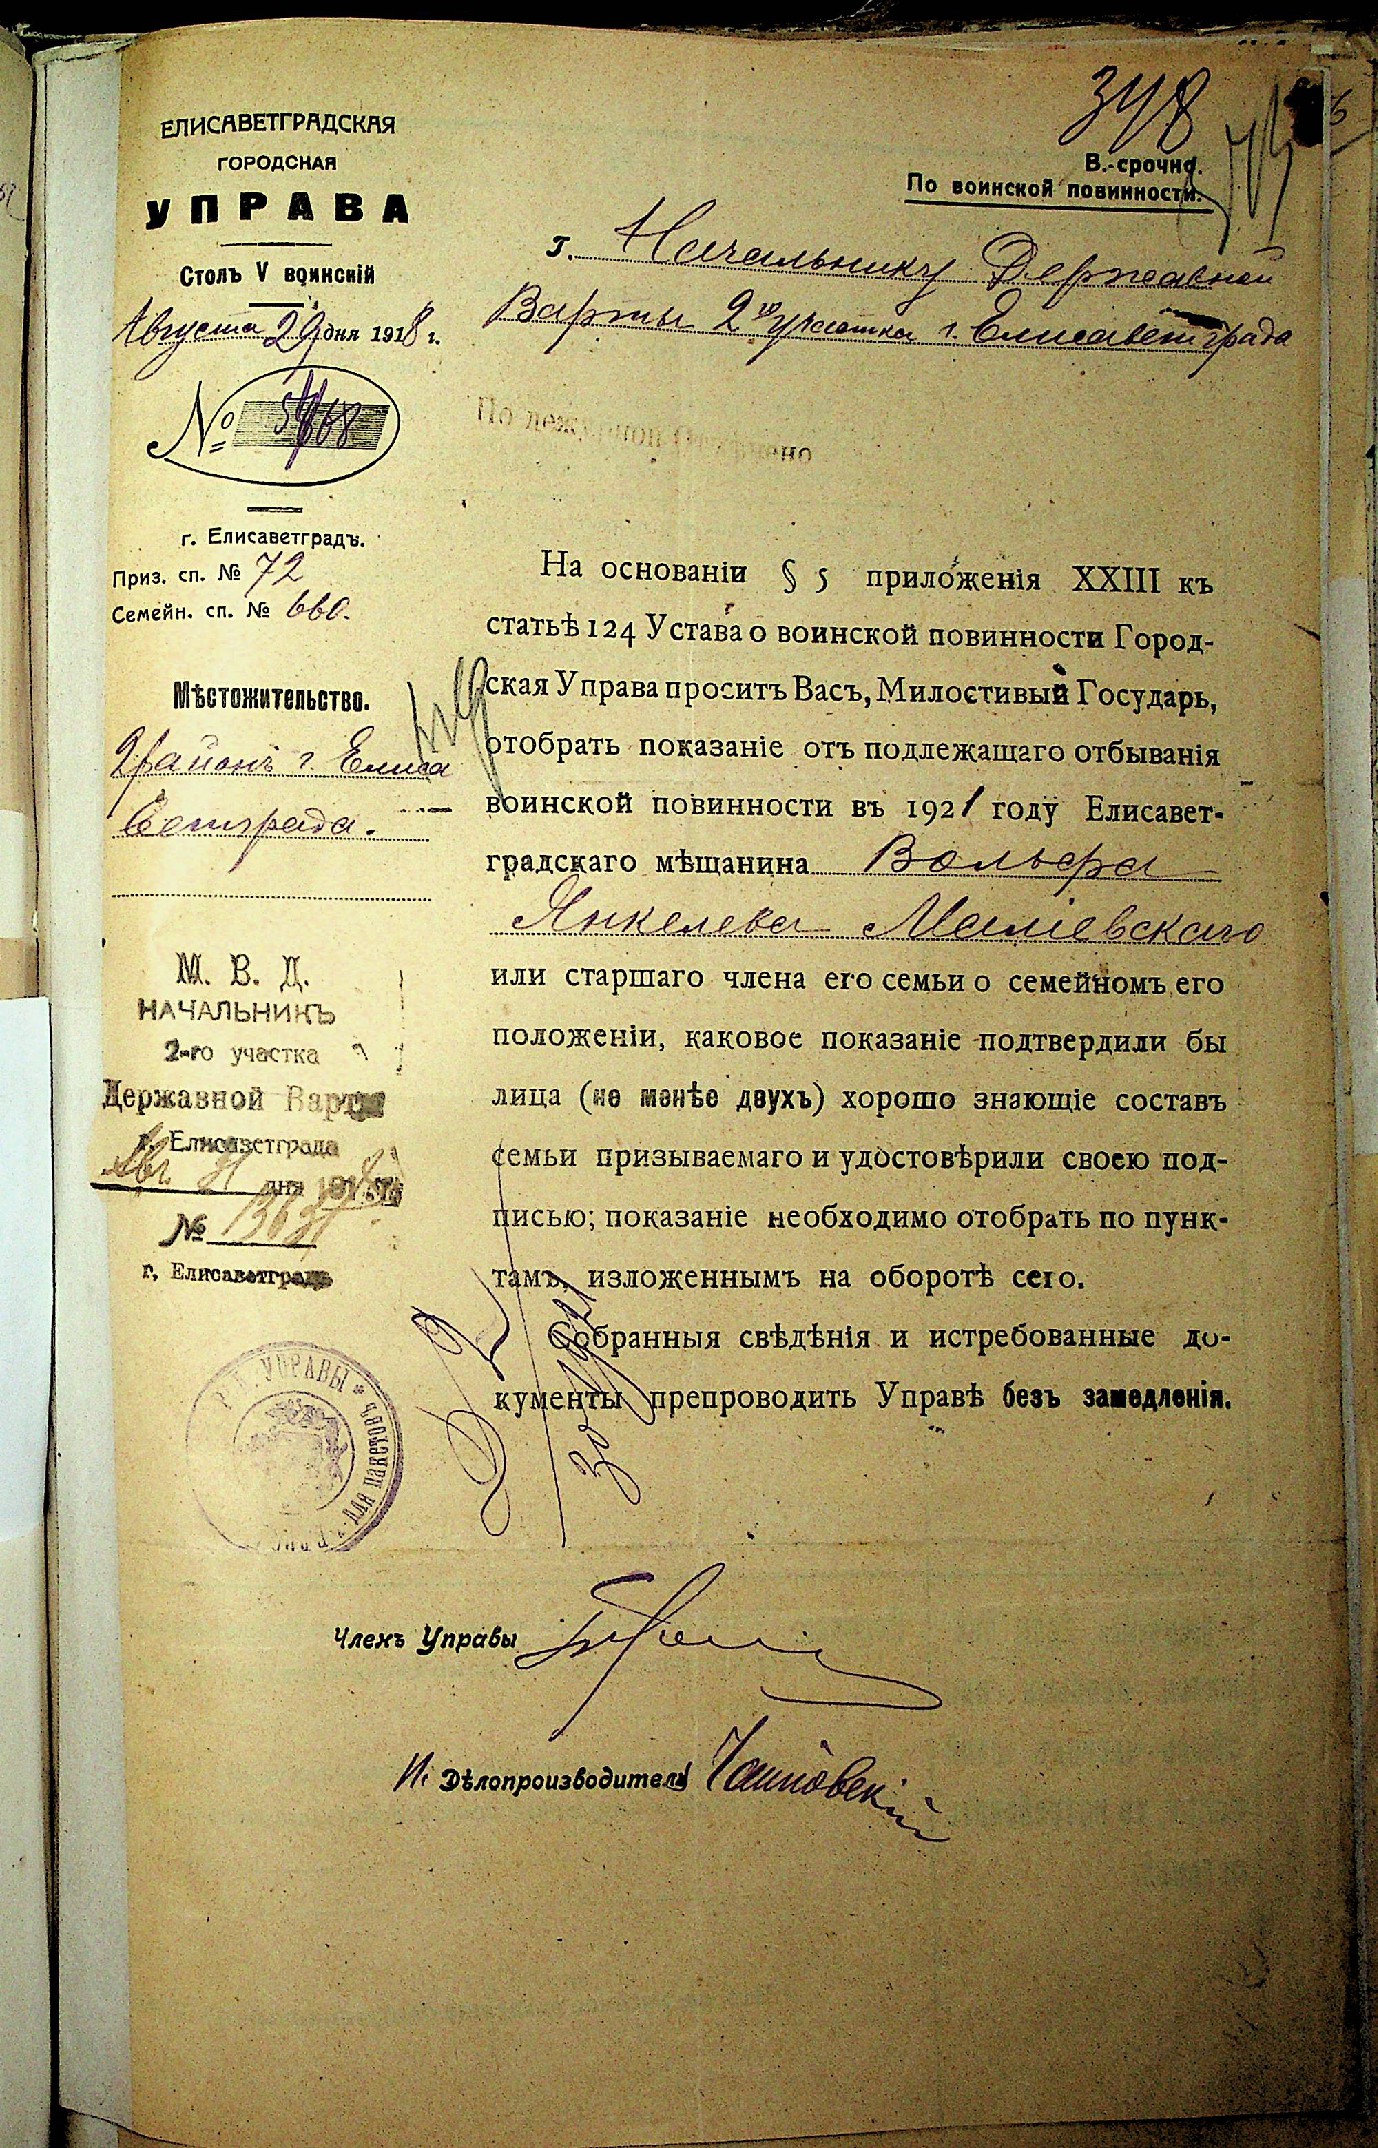 348
В.-срочно.
По воинской повинности.
ЕЛИСАВЕТГРАДСКАЯ
ГОРОДСКАЯ
УПРАВА
Столъ V воинскій
Августа 29 дня 1918 г.
№
г. Елисаветградъ.
Приз. сп. № 72
Семейн. сп. № 660.
Мѣстожительство.
2 районъ г. Елиса
ветграда.
М. В. Д.
НАЧАЛЬНИКЪ
2-го участка
Державной Варты
г. Елисаветграда
Авг. 31 дня 1918 г.
№
г. Елисаветградъ
УПРАВЫ * для пакетовъ
г. Начальнику Державной
Варты 2го участка г. Елисаветграда
На основаніи § 5 приложенія XXIII къ
статьѣ 124 Устава о воинской повинности Город-
ская Управа проситъ Васъ, Милостивый Государь,
отобрать показаніе отъ подлежащаго отбыванія
воинской повинности въ 1921 году Елисавет-
градскаго мѣщанина Вольфа
Янкелева
или старшаго члена его семьи о семейномъ его
положеніи, каковое показаніе подтвердили бы
лица (не менѣе двухъ) хорошо знающіе составъ
семьи призываемаго и удостовѣрили своею под-
писью; показаніе необходимо отобрать по пунк-
тамъ, изложеннымъ на оборотѣ сего.
Собранныя свѣдѣнія и истребованные до-
кументы препроводить Управѣ безъ замедленія.
Членъ Управы
И. Дѣлопроизводителя